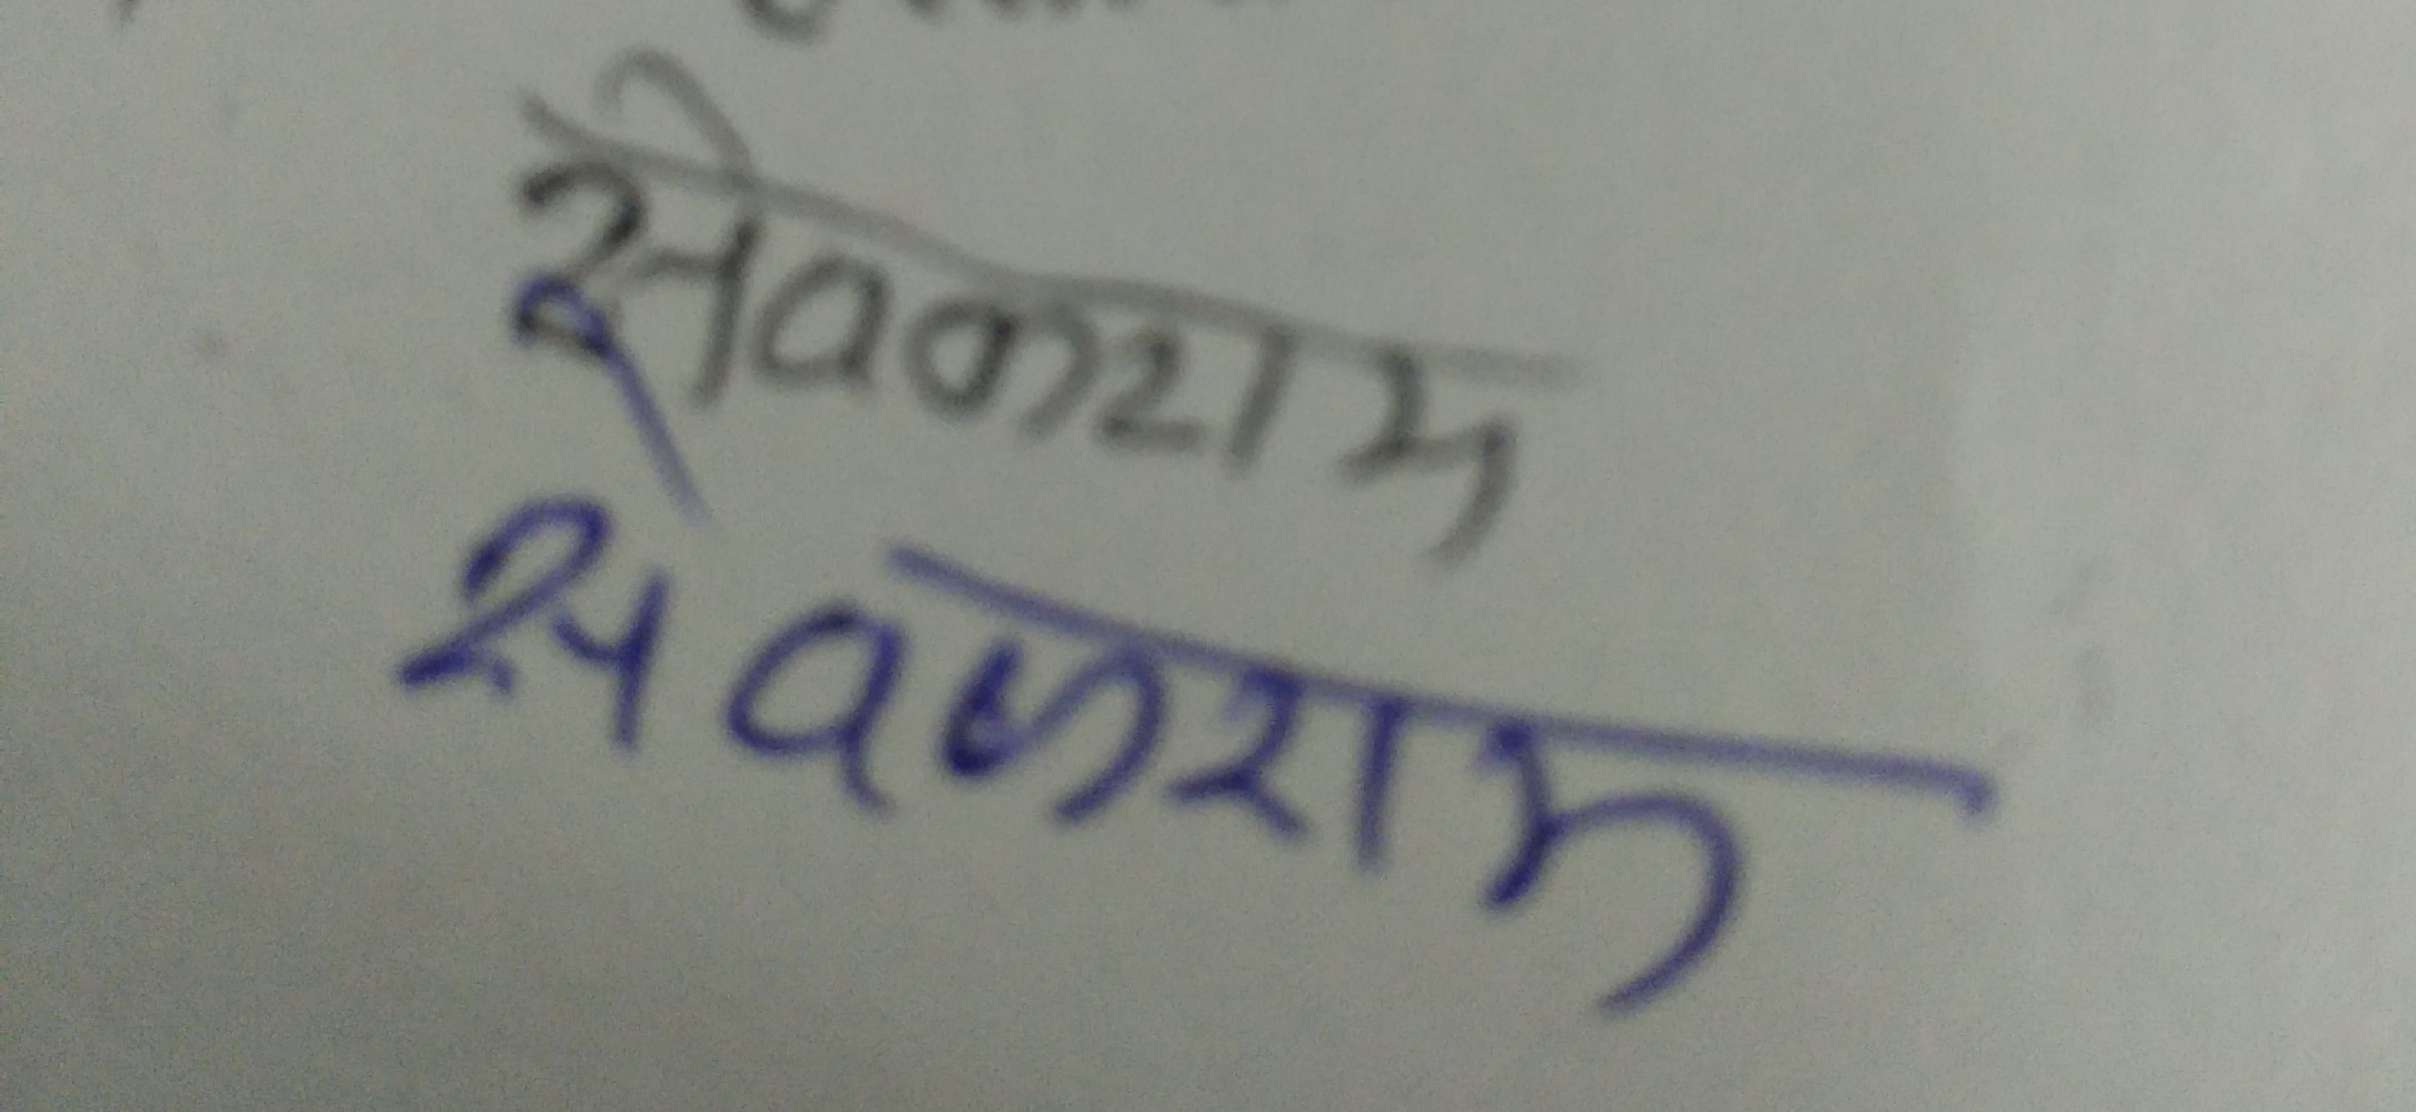 सेवकराम
सेवकराम